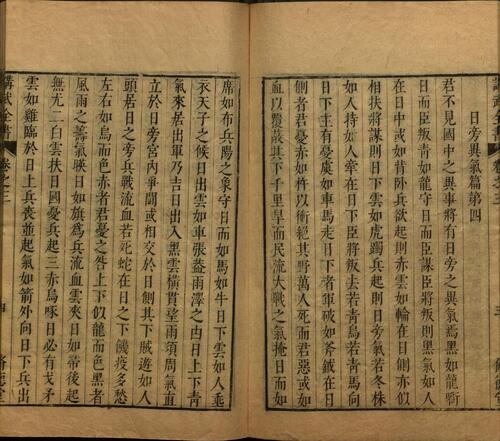 日旁異氣篇第四
君不見國中之異事將有日旁之異氣焉黑如龍銜
日而臣叛靑如龍守日而臣謀臣將叛則黑氣如人
在日中或如昔卧兵欲起則赤雲如輪在日側亦似
相扶將謀則日下雲如虎躅兵起則日旁氣若冬株
如人持如人牽在日下臣將叛去若靑烏若靑馬向
日下主有憂虞如車馬走日下者軍破如斧鉞在日
側者君憂赤如杵以衝絕其野萬人死而君惡或如
血以覆蔽其下千里旱而民流大戰之氣掩日而如
席如布兵陽之象守日而如馬如牛日下雲如人乘
衣天子之候日出雲如車張葢雨澤之内日上下靑
氣來居出軍乃吉日出入黑雲橫貫望雨須周氣直
立於日旁宮内爭鬭或相交於日側其下賊遊如人
頭居日之旁兵戰流血若死蛇在日之下饑疫多愁
左右如烏而色赤者君憂之咎上下似龍而色黑者
風雨之籌氣暎日如旗爲兵流血雲夾日如帶後起
無尤二白雲扶日國憂兵起三赤烏啄日必有戈矛
雲如雞臨於日上兵喪並起氣如箭外向日下兵出
講武全書 卷之三
四